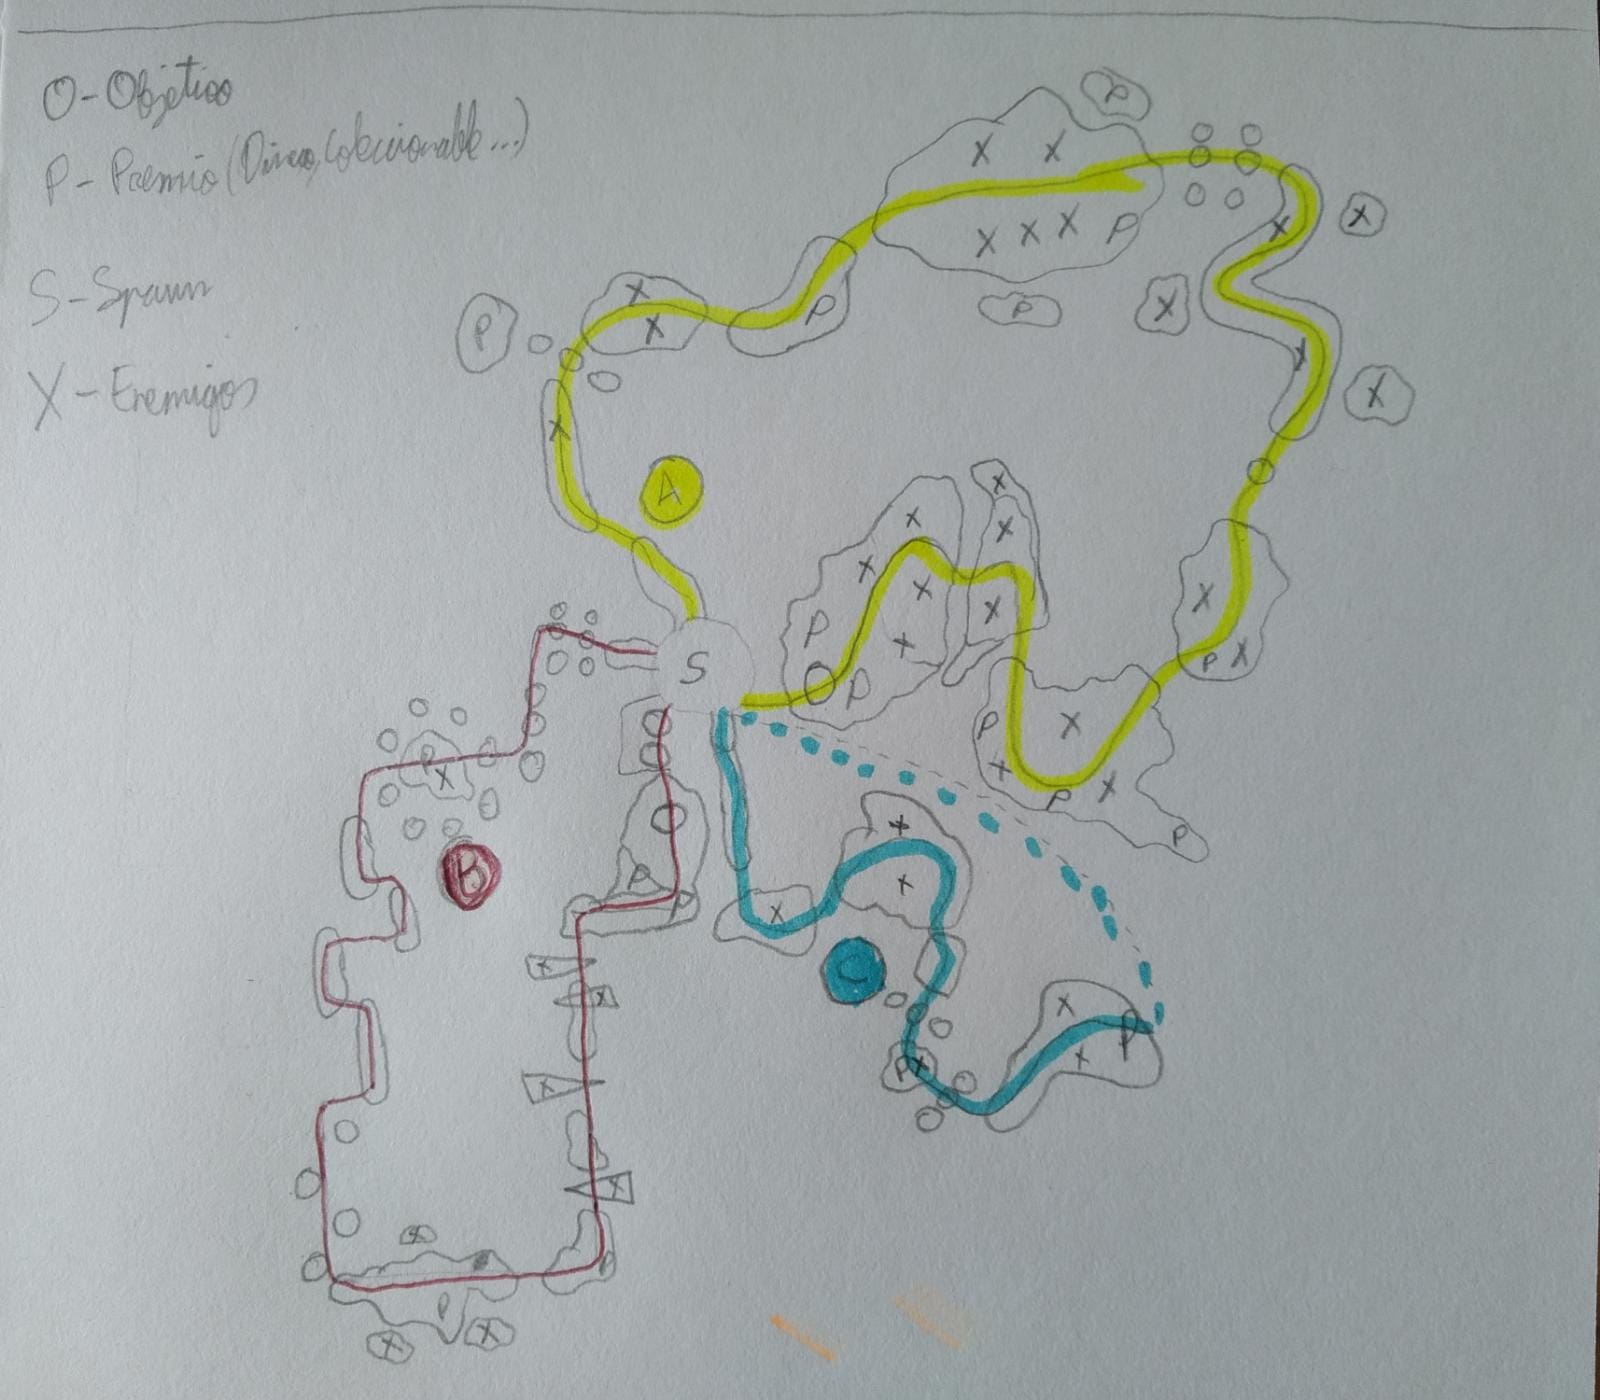 O - Objetivo
P - Premio (Dinero, Coleccionable...)
S - Spawn
X - Enemigos
P
X X
X X X P
X
X
P
X
X
P
P
X
X
X
X
A
X
X
X
X
X
X
P
X
X
X
P X
S
O P
P
X
X
X
P
P
P
X
O
X
B
P
X
X
P
C
X
X
X
P X
X
X
P
X
X
X
P
P
X
X